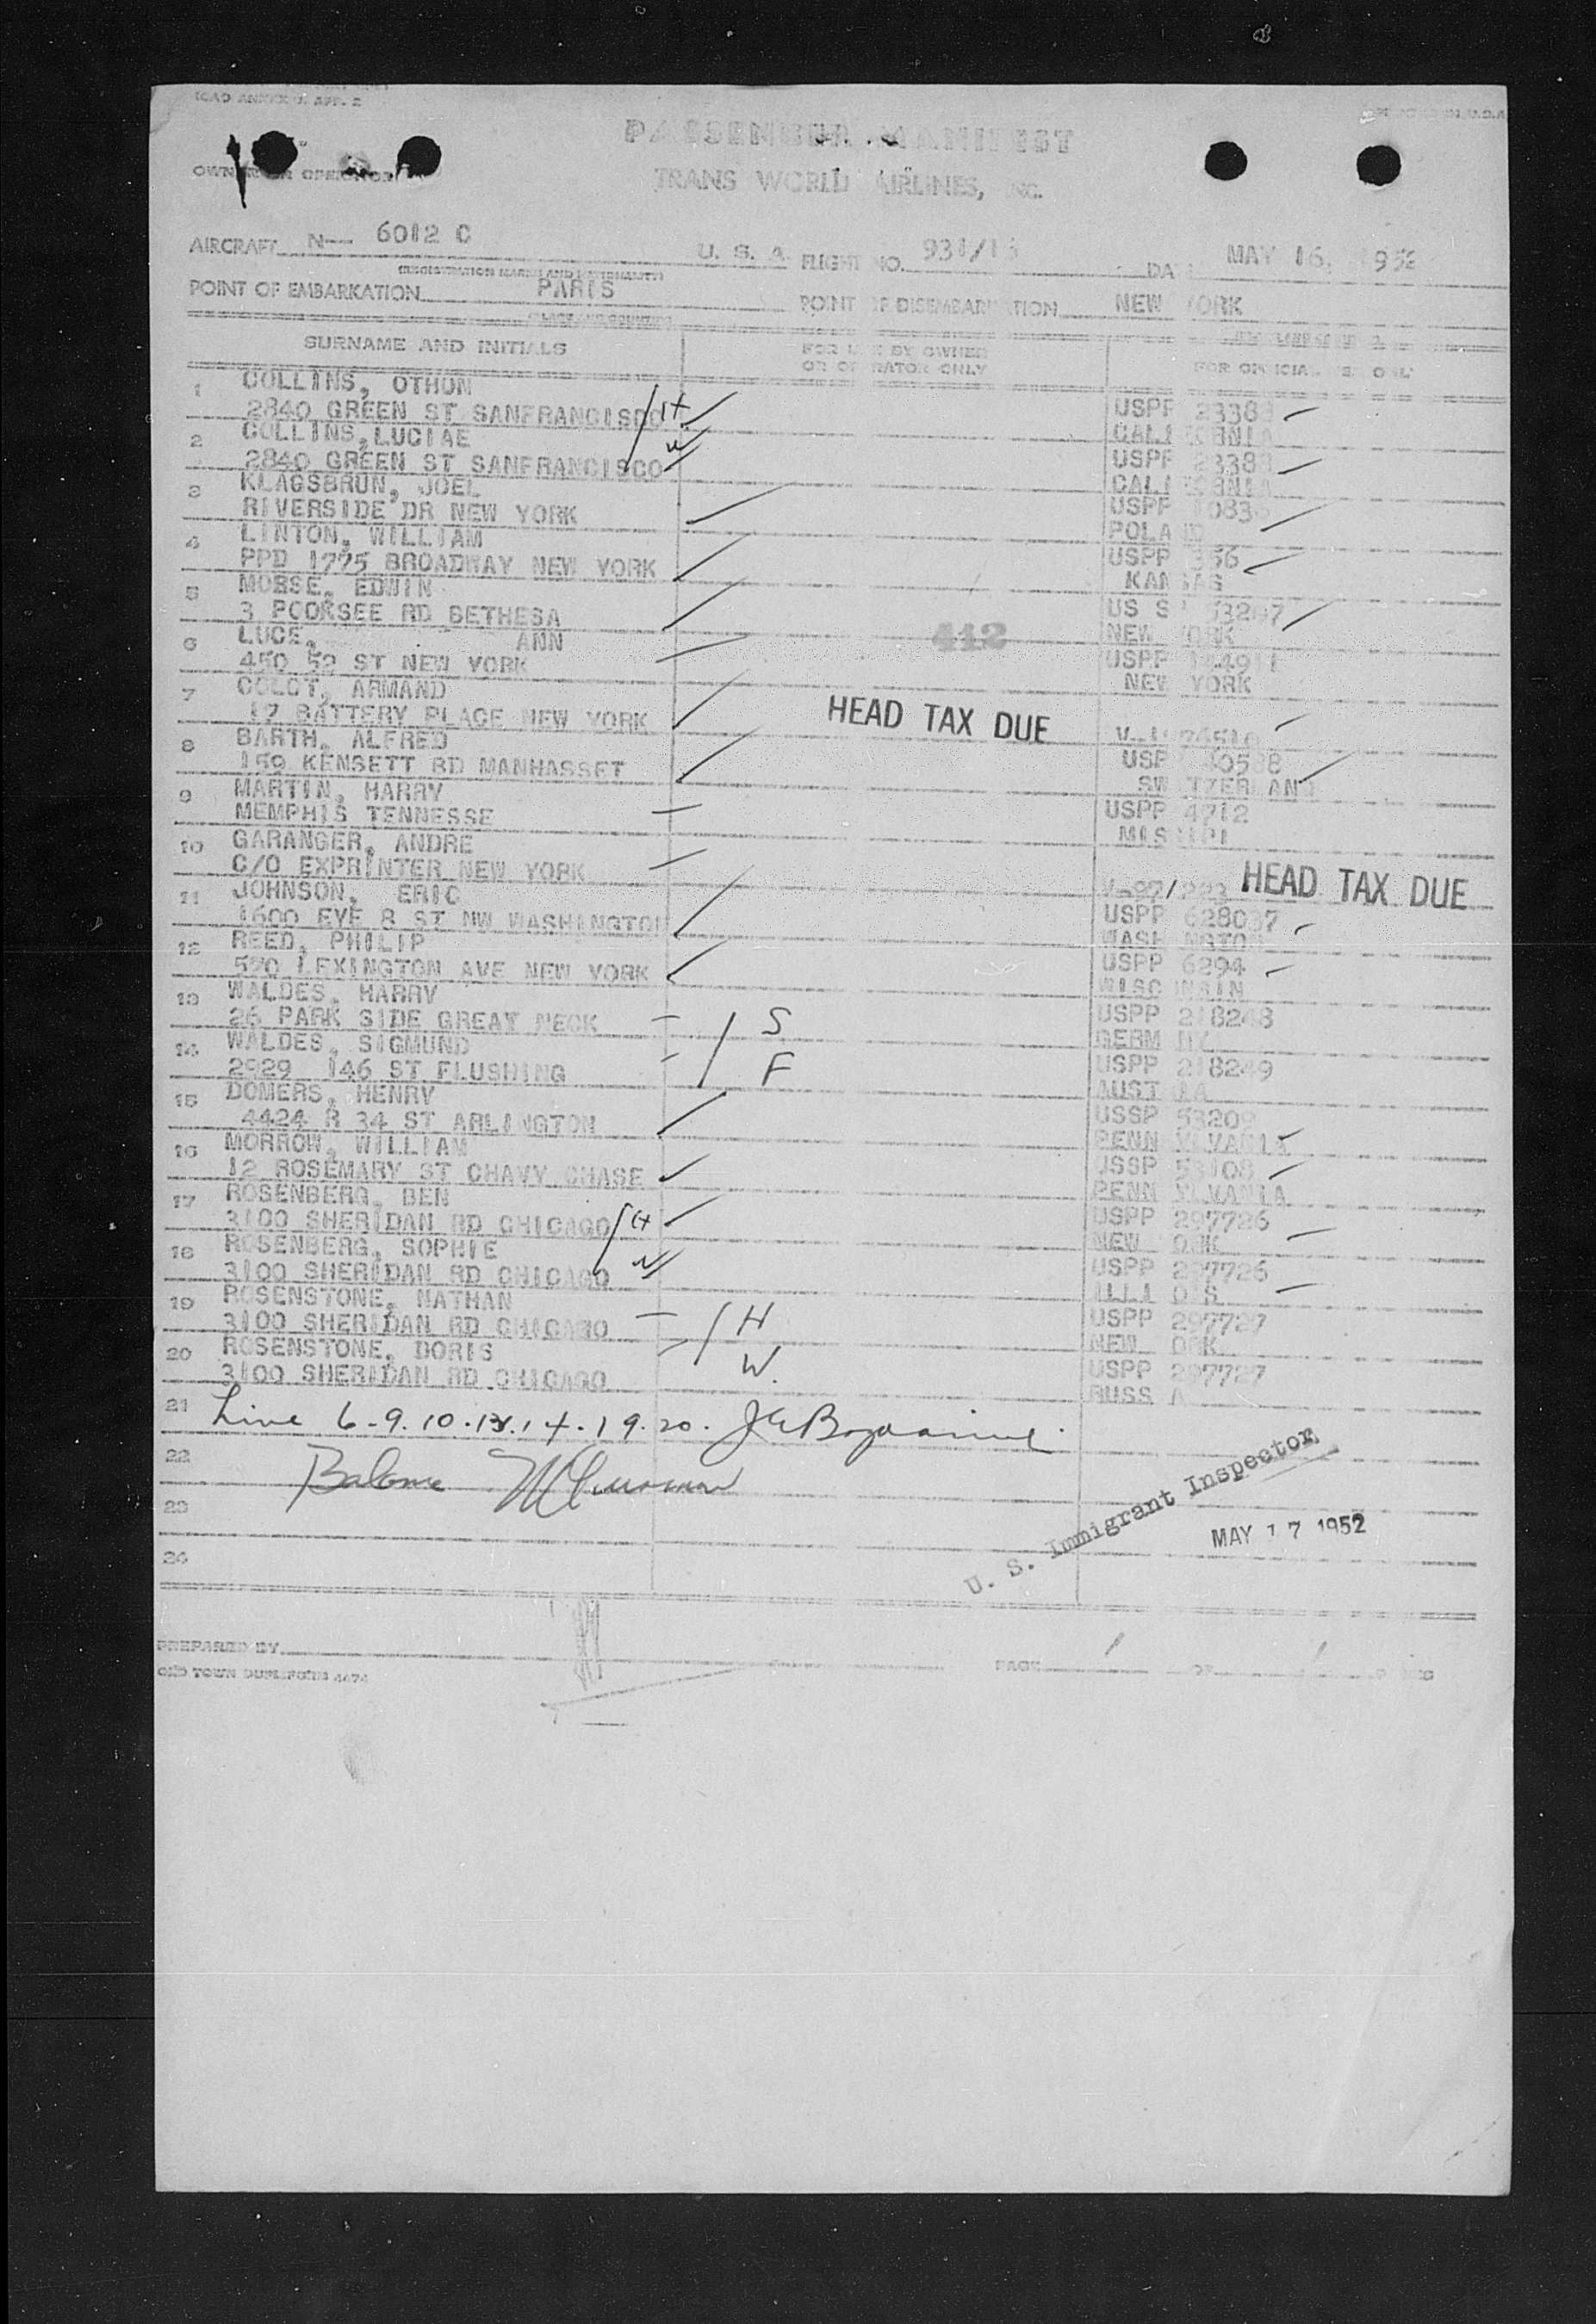 ICAO ANNEX 9 APP. 2
PASSENGER MANIFEST
OWNER OR OPERATOR
TRANS WORLD AIRLINES, INC.
AIRCRAFT N— 6012 C U. S. A. FLIGHT NO. 931/ DATE MAY 16, 1952
(REGISTRATION MARKS AND NATIONALITY)
POINT OF EMBARKATION PARIS POINT OF DISEMBARKATION NEW YORK
(PLACE AND COUNTRY)
SURNAME AND INITIALS FOR USE BY OWNER OR OPERATOR ONLY FOR OFFICIAL USE ONLY
1 COLLINS, OTHON
2840 GREEN ST SANFRANCISCO H USPP 23388
2 COLLINS, LUCIAE CALIFORNIA
2840 GREEN ST SANFRANCISCO W USPP 23388
3 KLAGSBRUN, JOEL CALIFORNIA
RIVERSIDE DR NEW YORK USPP
4 LINTON, WILLIAM POLAND
PPD 1775 BROADWAY NEW YORK USPP
5 MORSE, EDWIN KANSAS
3 POOKSEE RD BETHESA US SP 53207
6 LUCE, ANN 412 NEW YORK
450 52 ST NEW YORK USPP
7 COLOT, ARMAND NEW YORK
17 BATTERY PLACE NEW YORK HEAD TAX DUE
8 BARTH, ALFRED
169 KENSETT RD MANHASSET USPP
9 MARTIN, HARRY SWITZERLAND
MEMPHIS TENNESSE USPP 4712
10 GARANGER, ANDRE
C/O EXPRINTER NEW YORK HEAD TAX DUE
11 JOHNSON, ERIC
1600 EYE R ST NW WASHINGTON USPP 628037
12 REED, PHILIP WASHINGTON
570 LEXINGTON AVE NEW YORK USPP 6294
13 WALDES, HARRY WISCONSIN
26 PARK SIDE GREAT NECK S USPP 218248
14 WALDES, SIGMUND GERMANY
2929 146 ST FLUSHING F USPP 218249
15 DOMERS, HENRY AUSTRIA
4424 R 34 ST ARLINGTON USSP 53209
16 MORROW, WILLIAM PENNSYLVANIA
12 ROSEMARY ST CHAVY CHASE USSP 53108
17 ROSENBERG, BEN PENNSYLVANIA
3100 SHERIDAN RD CHICAGO H USPP 297726
18 ROSENBERG, SOPHIE NEW YORK
3100 SHERIDAN RD CHICAGO W USPP 297726
19 ROSENSTONE, NATHAN ILLINOIS
3100 SHERIDAN RD CHICAGO H USPP 297727
20 ROSENSTONE, DORIS NEW YORK
3100 SHERIDAN RD CHICAGO W. USPP 297727
RUSSIA
21 Line 6-9.10.13.14.19.20.
22 Balance
23
24
U. S. Immigrant Inspector
MAY 17 1952
PREPARED BY PAGE 1 OF 1 PAGES